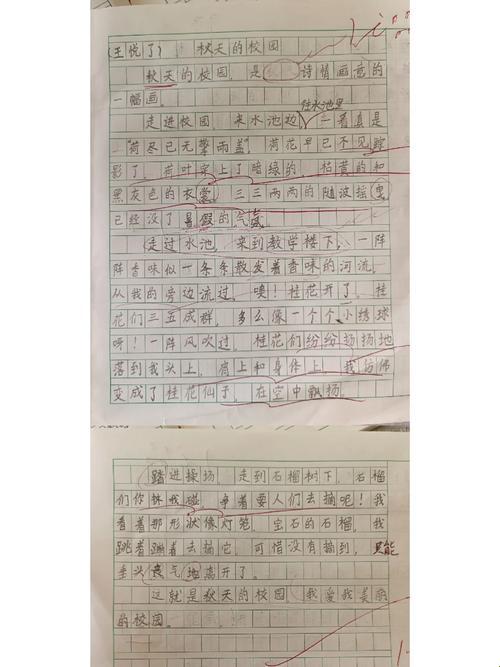 (王悦了) 秋天的校园
秋天的校园,是 诗情画意的
一幅画。
走进校园,来水池边,往水池里一看真是
“荷尽已无擎雨盖”,荷花早已不见踪
影了,荷叶穿上了暗绿的,枯黄的和
黑灰色的衣裳,三三两两的随波摇曳
已经没了暑假的气氛。
走过水池,来到教学楼下,一阵
阵香味似一条条散发着香味的河流,
从我的旁边流过。噢!桂花开了,桂
花们三五成群,多么像一个个小绣球
呀!一阵风吹过,桂花们纷纷扬扬地
落到我头上,肩上和身体上。我仿佛
变成了桂花仙子,在空中飘扬。
踏进操场,走到石榴树下,石榴
们你挤我碰,争着要人们去摘呢!我
看着那形状像灯笼,宝石的石榴,我
跳着蹦着去摘它,可惜没有摘到,只能
垂头丧气地离开了。
这就是秋天的校园,我爱我美丽
的校园。